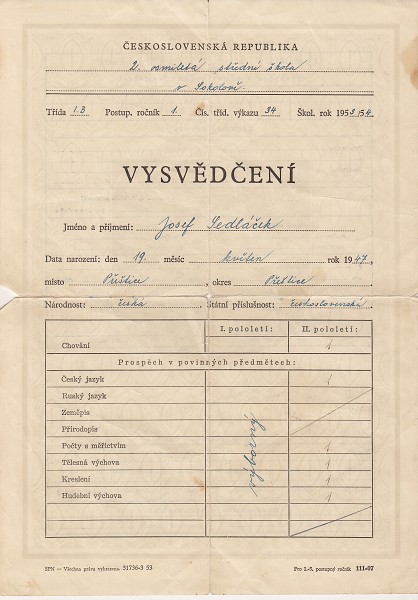 ČESKOSLOVENSKÁ REPUBLIKA
2. osmiletá střední škola
v Sokolově
Třída 1.B Postup. ročník 1 Čís. tříd. výkazu 34 Škol. rok 1953/54
VYSVĚDČENÍ
Jméno a příjmení: Josef Sedláček
Datum narození: den 19. měsíc květen rok 1947,
místo Přeštice, okres Přeštice
Národnost: česká Státní příslušnost: československá
I. pololetí: II. pololetí:
Chování 1
Prospěch v povinných předmětech:
Český jazyk 1
Ruský jazyk
Zeměpis
Přírodopis
Počty s měřictvím 1
Tělesná výchova 1
Kreslení 1
Hudební výchova 1
SPN — Všechna práva vyhrazena. 31736-3 53 Pro 1.-5. postupný ročník 111-07